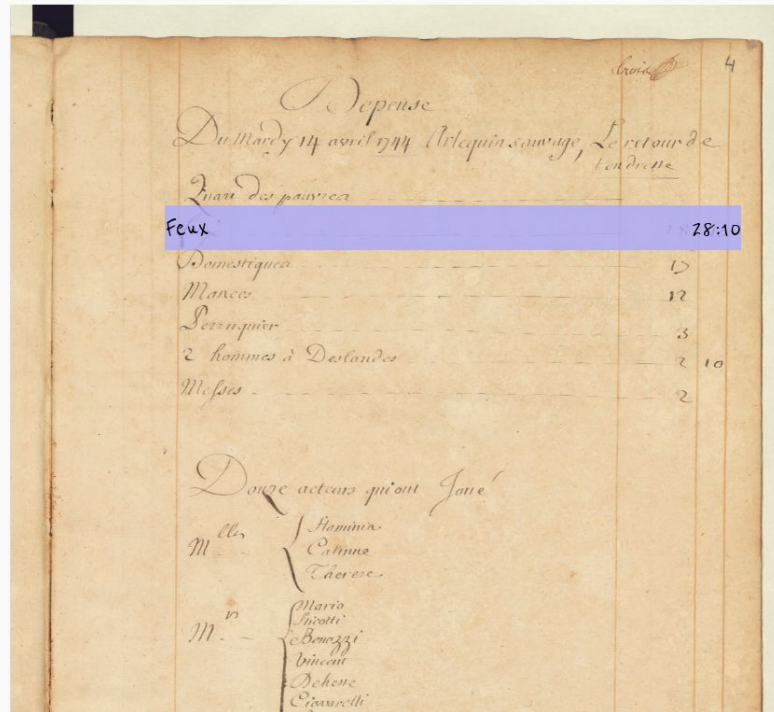 4
Depense
Du Mardy 14 avril 1744 Arlequin sauvage, Le retour de
tendresse
Quart des pauvres
Feux 28:10
Domestiques 13
Mances 12
Perruquier 3
2 hommes à Deslandes 2 10
Messes 2
Douze acteurs qui ont Joué
Mlles
Flaminia
Catinne
Therese
Mrs
Mario
Sticotti
Benozzi
Vincent
Dehesse
Ciavarelli